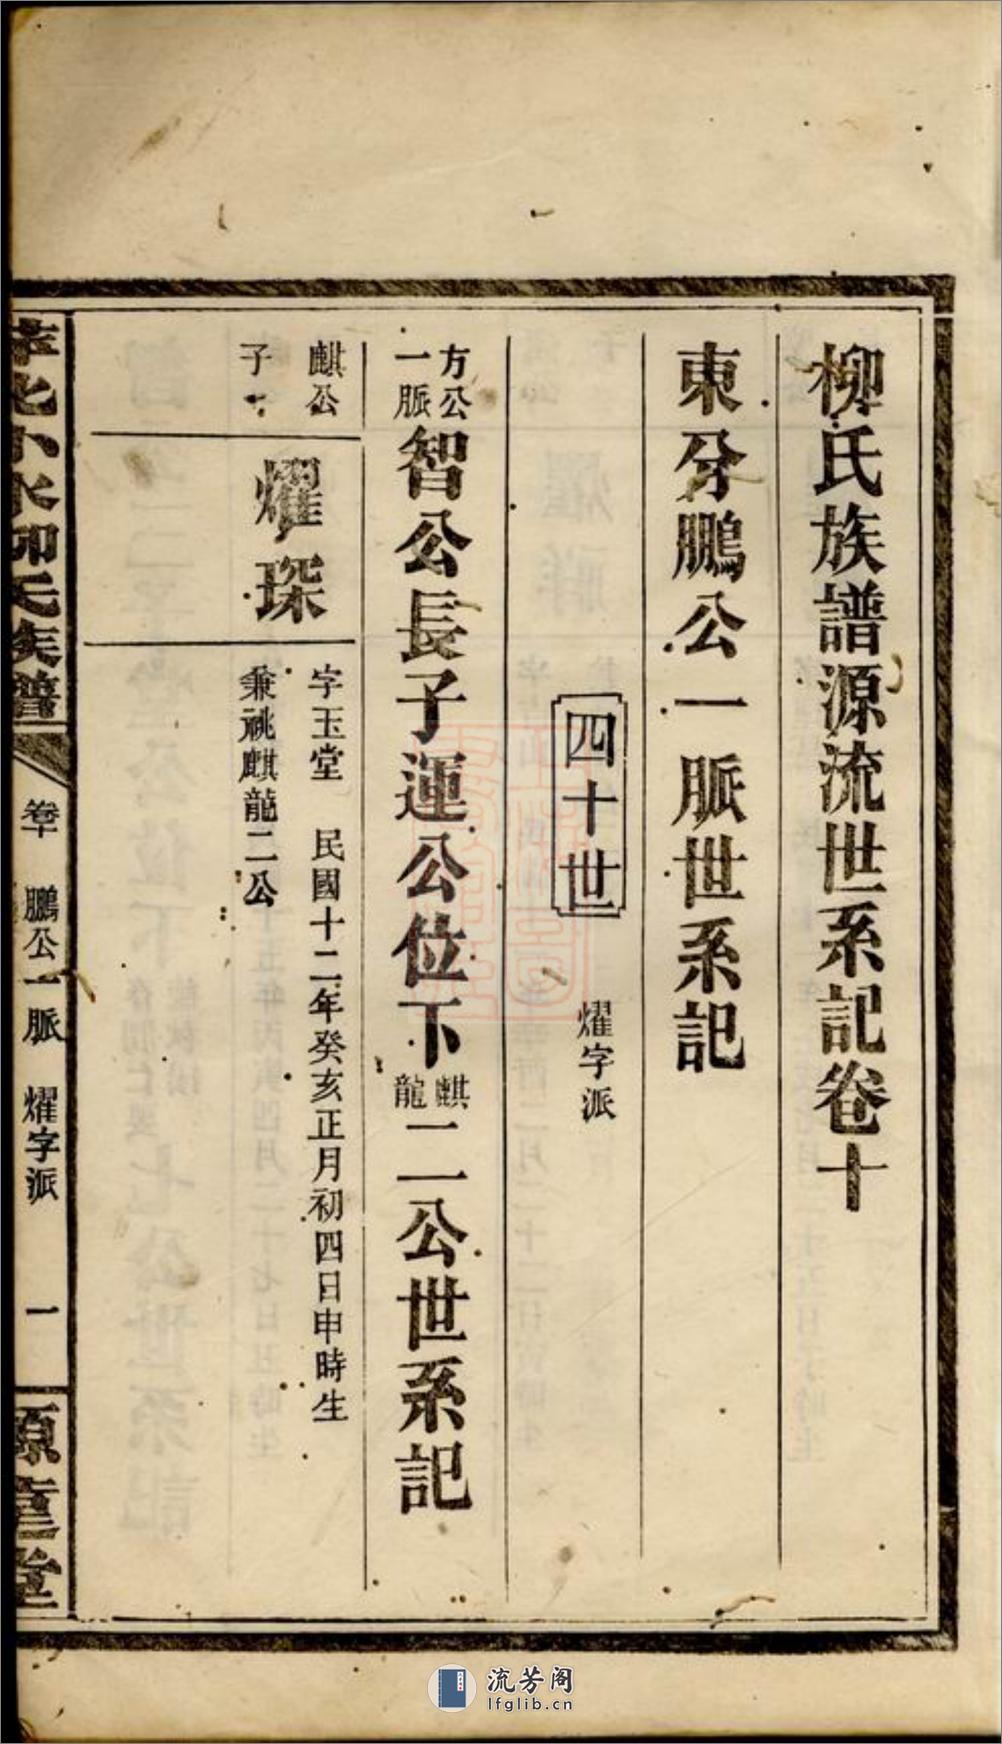 柳氏族譜源流世系記卷十
東分鵬公一脈世系記
四十世 燿字派
方公一脈 智公長子運公位下 麒龍 二公世系記
麒公子
燿琛
字玉堂 民國十二年癸亥正月初四日申時生
兼祧麒龍二公
萍北小水柳氏族譜 卷十 鵬公一脈 燿字派 一
流芳阁
lfglib.cn